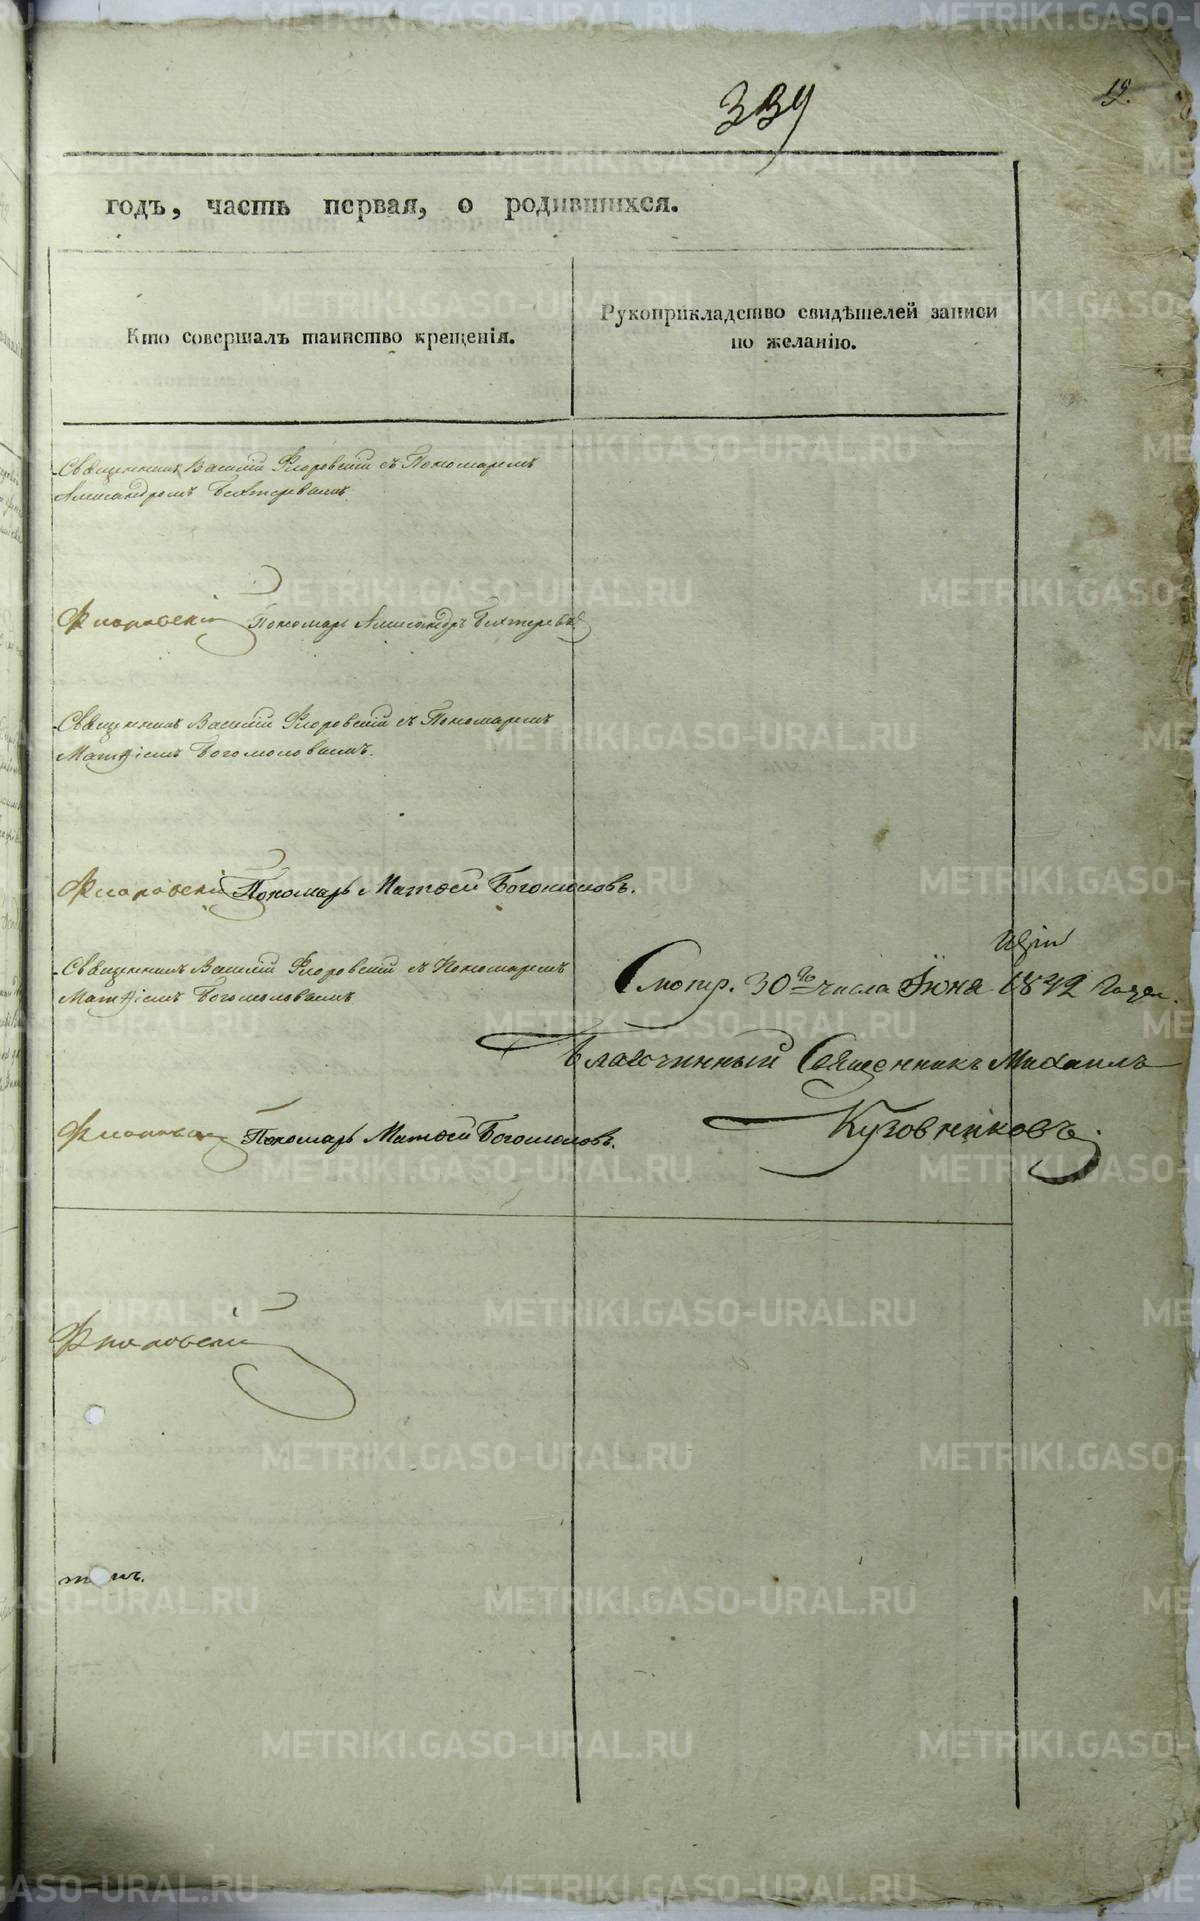 339
19.
годъ, часть первая, о родившихся.
Кто совершалъ таинство крещенія.
Рукоприкладство свидѣтелей записи
по желанію.
Священникъ Василій Флоровскій съ Пономаремъ
Александромъ Бехтеревымъ
Флоровскій Пономарь Александръ Бехтеревъ
Священникъ Василій Флоровскій съ Пономаремъ
Матѳіемъ Богомоловымъ.
Флоровскій Пономарь Матѳей Богомоловъ.
Священникъ Василій Флоровскій съ Пономаремъ
Матѳіемъ Богомоловымъ
Смотр. 30го числа Іюня 1842 Года.
Благочинный Священникъ Михаилъ
Флоровскій Пономарь Матѳей Богомоловъ.
Кузовниковъ
Флоровскій
METRIKI.GASO-URAL.RU